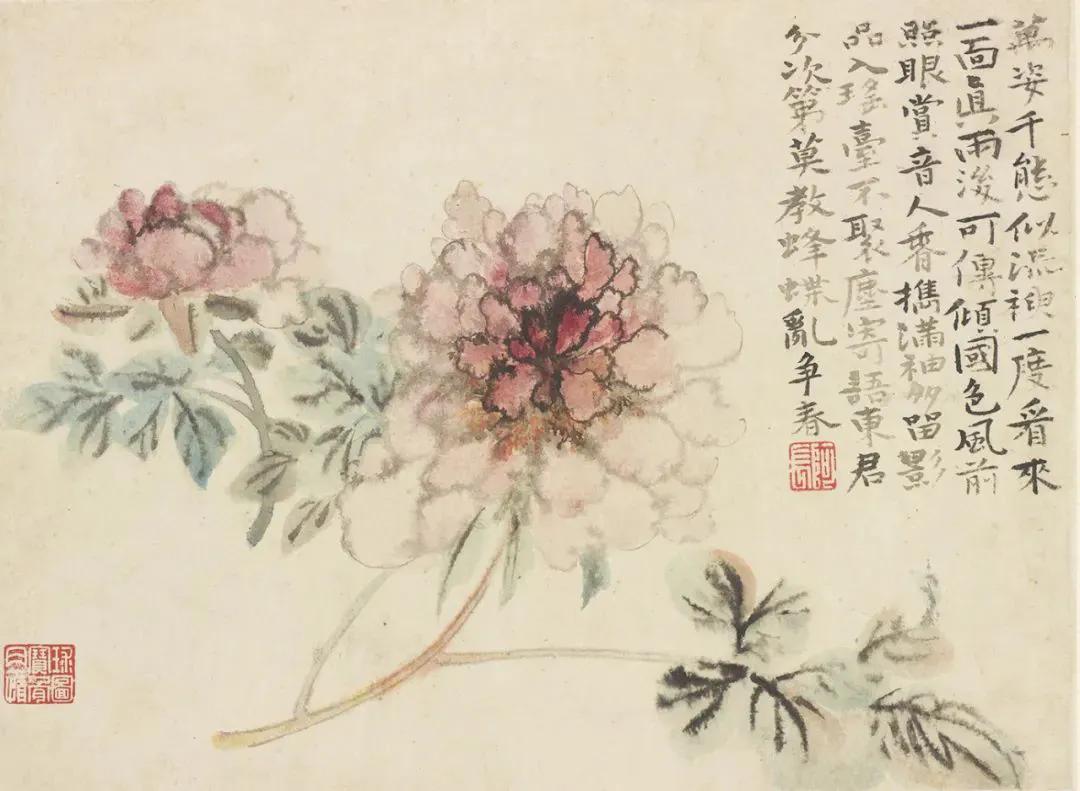 萬姿千態似流神一度看來
一面眞雨後可傳傾國色風前
照眼賞音人香擕滿袖多留影
品入瑤臺不聚塵寄語東君
分次第莫教蜂蝶亂争春
阿長
球圖
寶骨